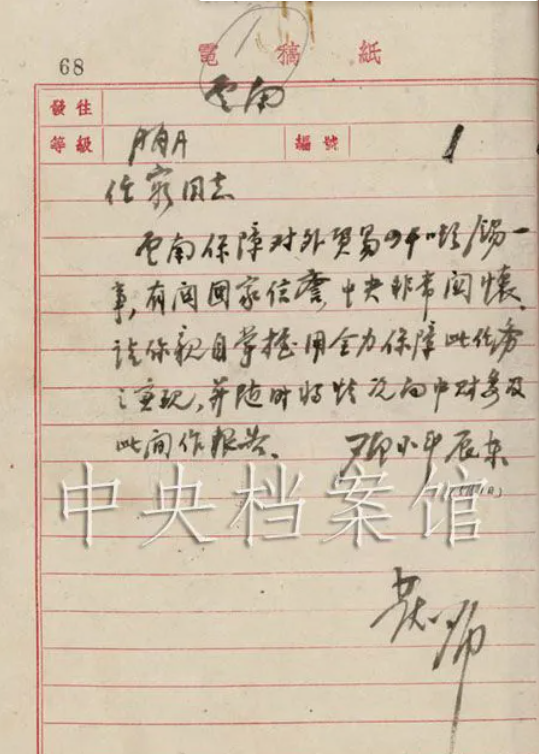 68
電稿紙
發往 云南
等級 編號 1
任窮同志
云南保障对外貿易四千吨錫一
事,有関国家信誉,中央非常関懷。
請你親自掌握用全力保障此任务
之实现,并随时将情况向中财委及
此间作报告。 邓小平 辰东
中央档案馆